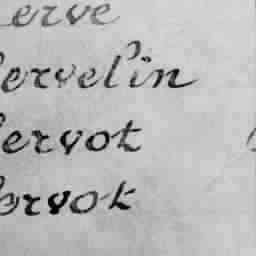 erve
ervelin
ervot
orvok